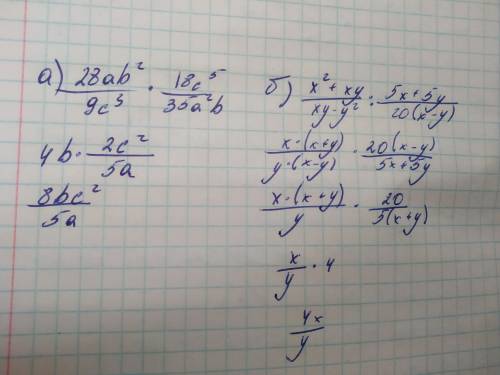 а) 28ab²/9c³ · 18c⁵/35a²b
4b · 2c²/5a
8bc²/5a
б) x² + xy/xy - y² : 5x + 5y/20(x - y)
x · (x + y)/y · (x - y) · 20(x - y)/5x + 5y
x · (x + y)/y · 20/5(x + y)
x/y · 4
4x/y